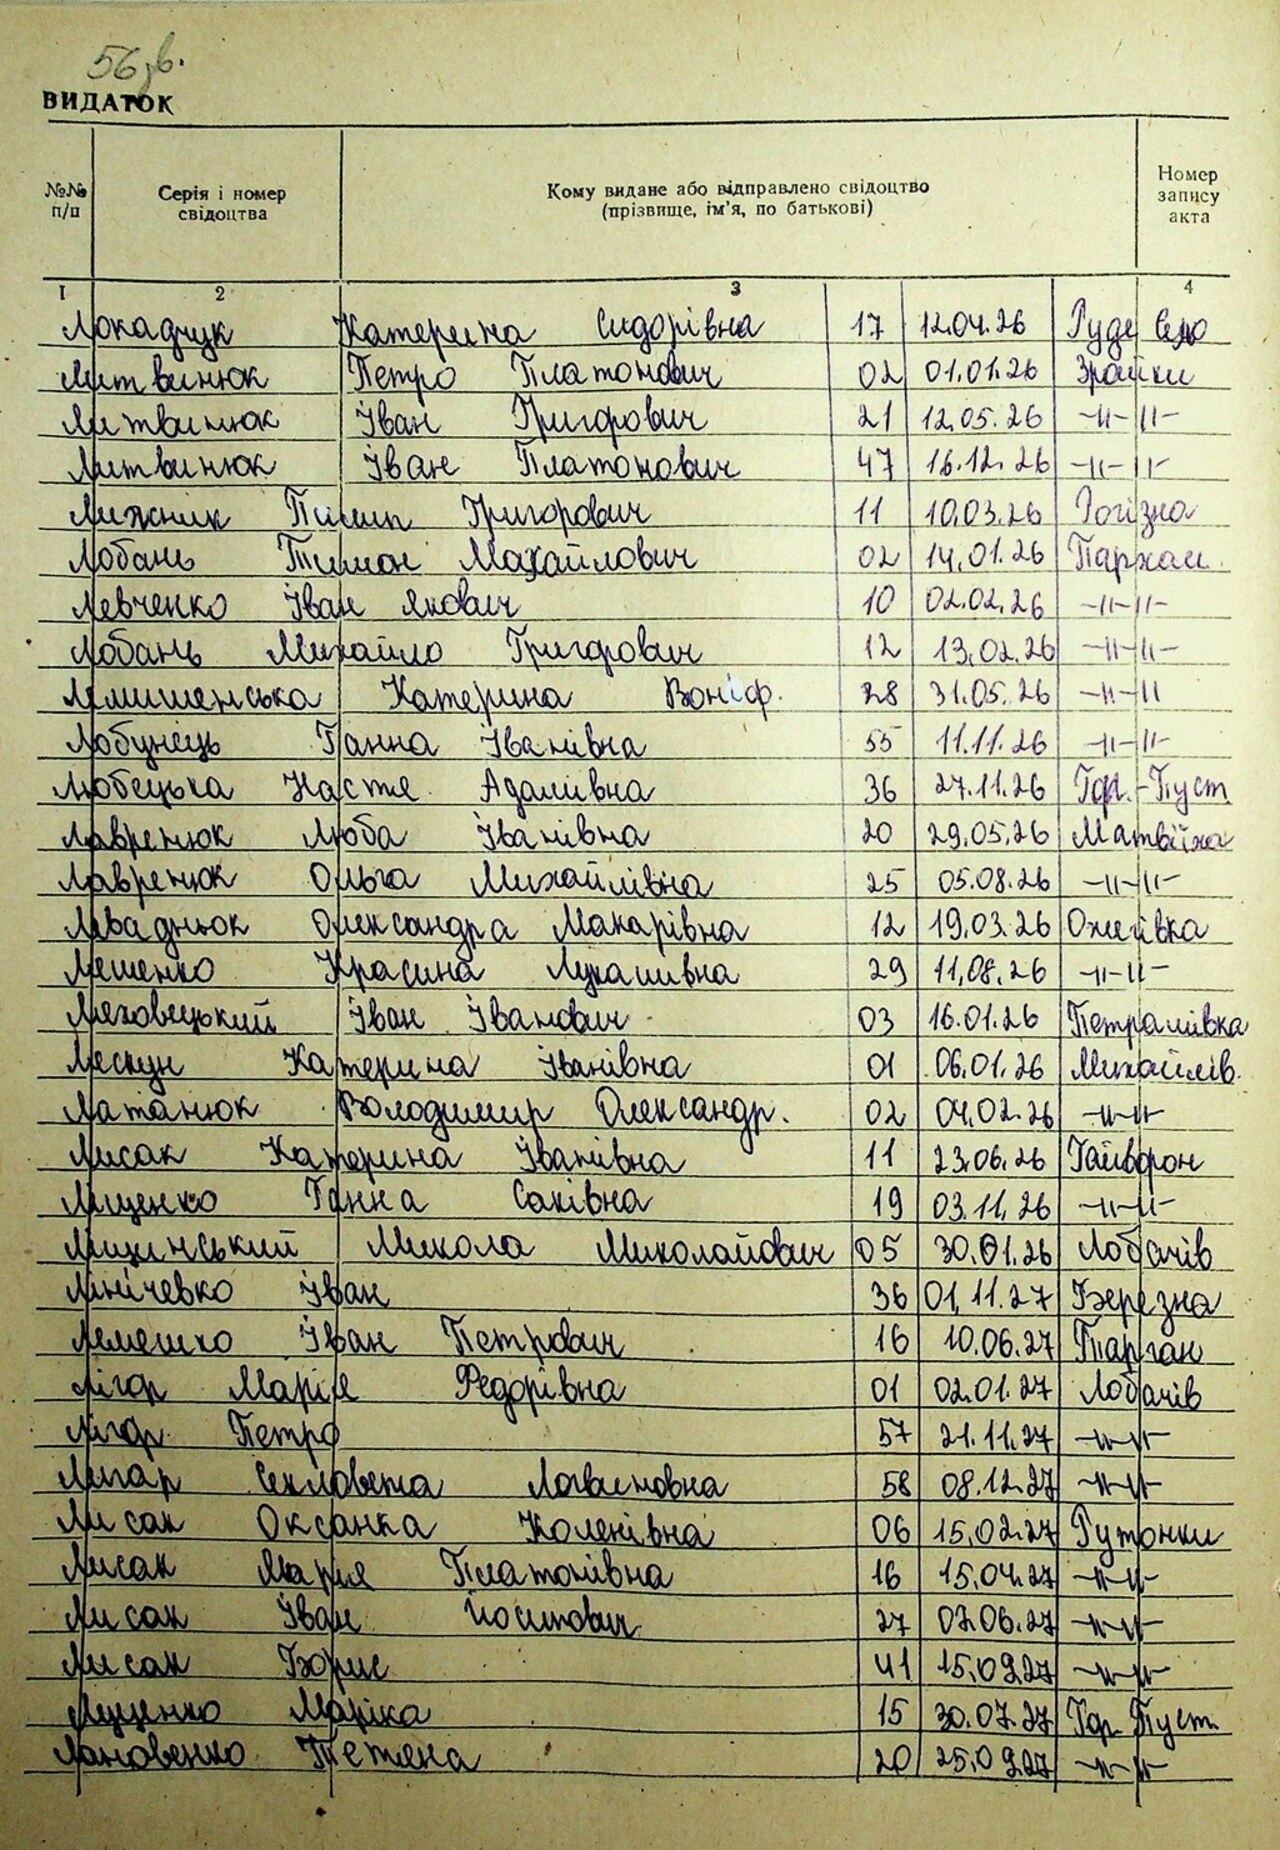 56 зв.
ВИДАТОК
№№ п/п
Серія і номер свідоцтва
Кому видане або відправлено свідоцтво (прізвище, ім'я, по батькові)
Номер запису акта
1 2 3 4
Локадчук Катерина Сидорівна 17 12.04.26 Руде Село
Литвинюк Петро Платонович 02 01.01.26 Зрайки
Литвинюк Іван Григорович 21 12.05.26 -||-||-
Литвинюк Іван Платонович 47 16.12.26 -||-||-
Лижник Пилип Григорович 11 10.03.26 Рогізна
Лобань Тимон Махайлович 02 14.01.26 Пархом.
Левченко Іван Якович 10 02.02.26 -||-||-
Лобань Михайло Григорович 12 13.02.26 -||-||-
Лемишенська Катерина Воніф. 28 31.05.26 -||-||
Лобунець Ганна Іванівна 55 11.11.26 -||-||-
Любецька Настя Адамівна 36 27.11.26 Гор.-Пуст
Лавренюк Люба Іванівна 20 29.05.26 Матвіїха
Лавренюк Ольга Михайлівна 25 05.08.26 -||-||-
Леваднюк Олександра Макарівна 12 19.03.26 Ожегівка
Лешенко Красина Лукашивна 29 11.08.26 -||-||-
Леховецький Іван Іванович 03 16.01.26 Петрашівка
Лескун Катерина Іванівна 01 06.01.26 Михайлів.
Латанюк Володимир Олександр. 02 04.02.26 -||-||-
Лисак Катерина Іванівна 11 23.06.26 Гайворон
Ліщенко Ганна Саківна 19 03.11.26 -||-||-
Лищинський Микола Миколайович 05 30.01.26 Лобачів
Лінічевко Іван 36 01.11.27 Березна
Лемешко Іван Петрович 16 10.06.27 Тарган
Лігор Марія Федорівна 01 02.01.27 Лобачів
Лігор Петро 57 21.11.27 -||-||-
Лигар Секловета Логвиновна 58 08.12.27 -||-||-
Лисак Оксанка Коленівна 06 15.02.27 Рутонки
Лисак Марія Платонівна 16 15.04.27 -||-||-
Лисак Іван Йосипович 27 07.06.27 -||-||-
Лисак Борис 41 15.09.27 -||-||-
Луценко Маріка 15 30.07.27 Гор. Пуст.
Лановенко Тетяна 20 25.09.27 -||-||-